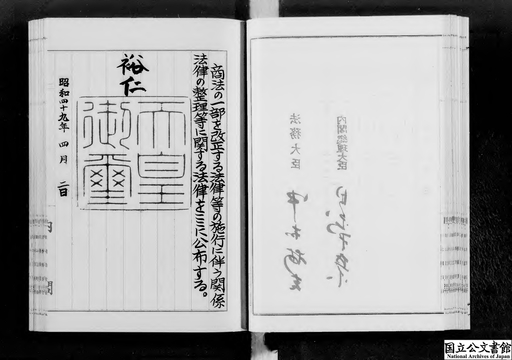 商法の一部を改正する法律等の施行に伴う関係
法律の整理等に関する法律をここに公布する。
裕仁
天皇
御璽
昭和四十九年 四月 二日
内閣
内閣総理大臣
法務大臣
国立公文書館
National Archives of Japan